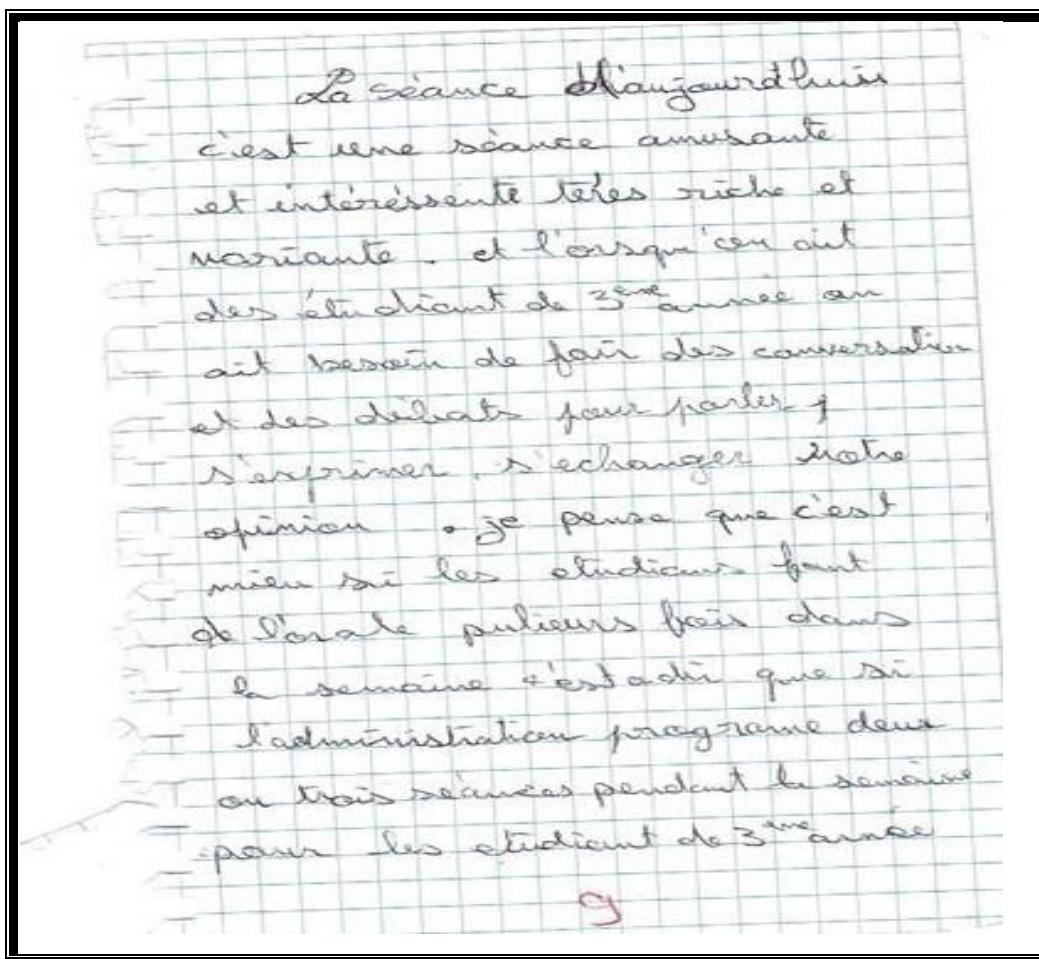 La séance d'aujourd'huis
c'est une séance amusante
et intéréssente très riche et
variante. et l'orsqu'on ait
des étudiant de 3ème année on
ait besoin de fair des conversation
et des débats pour parler,
s'exprimer, s'echanger notre
opinion. je pense que c'est
mieu si les etudians font
de l'orale pulieurs fois dans
la semaine c'est adir que si
l'administration programe deux
ou trois séances pendant la semaine
pour les etudiant de 3ème année
9